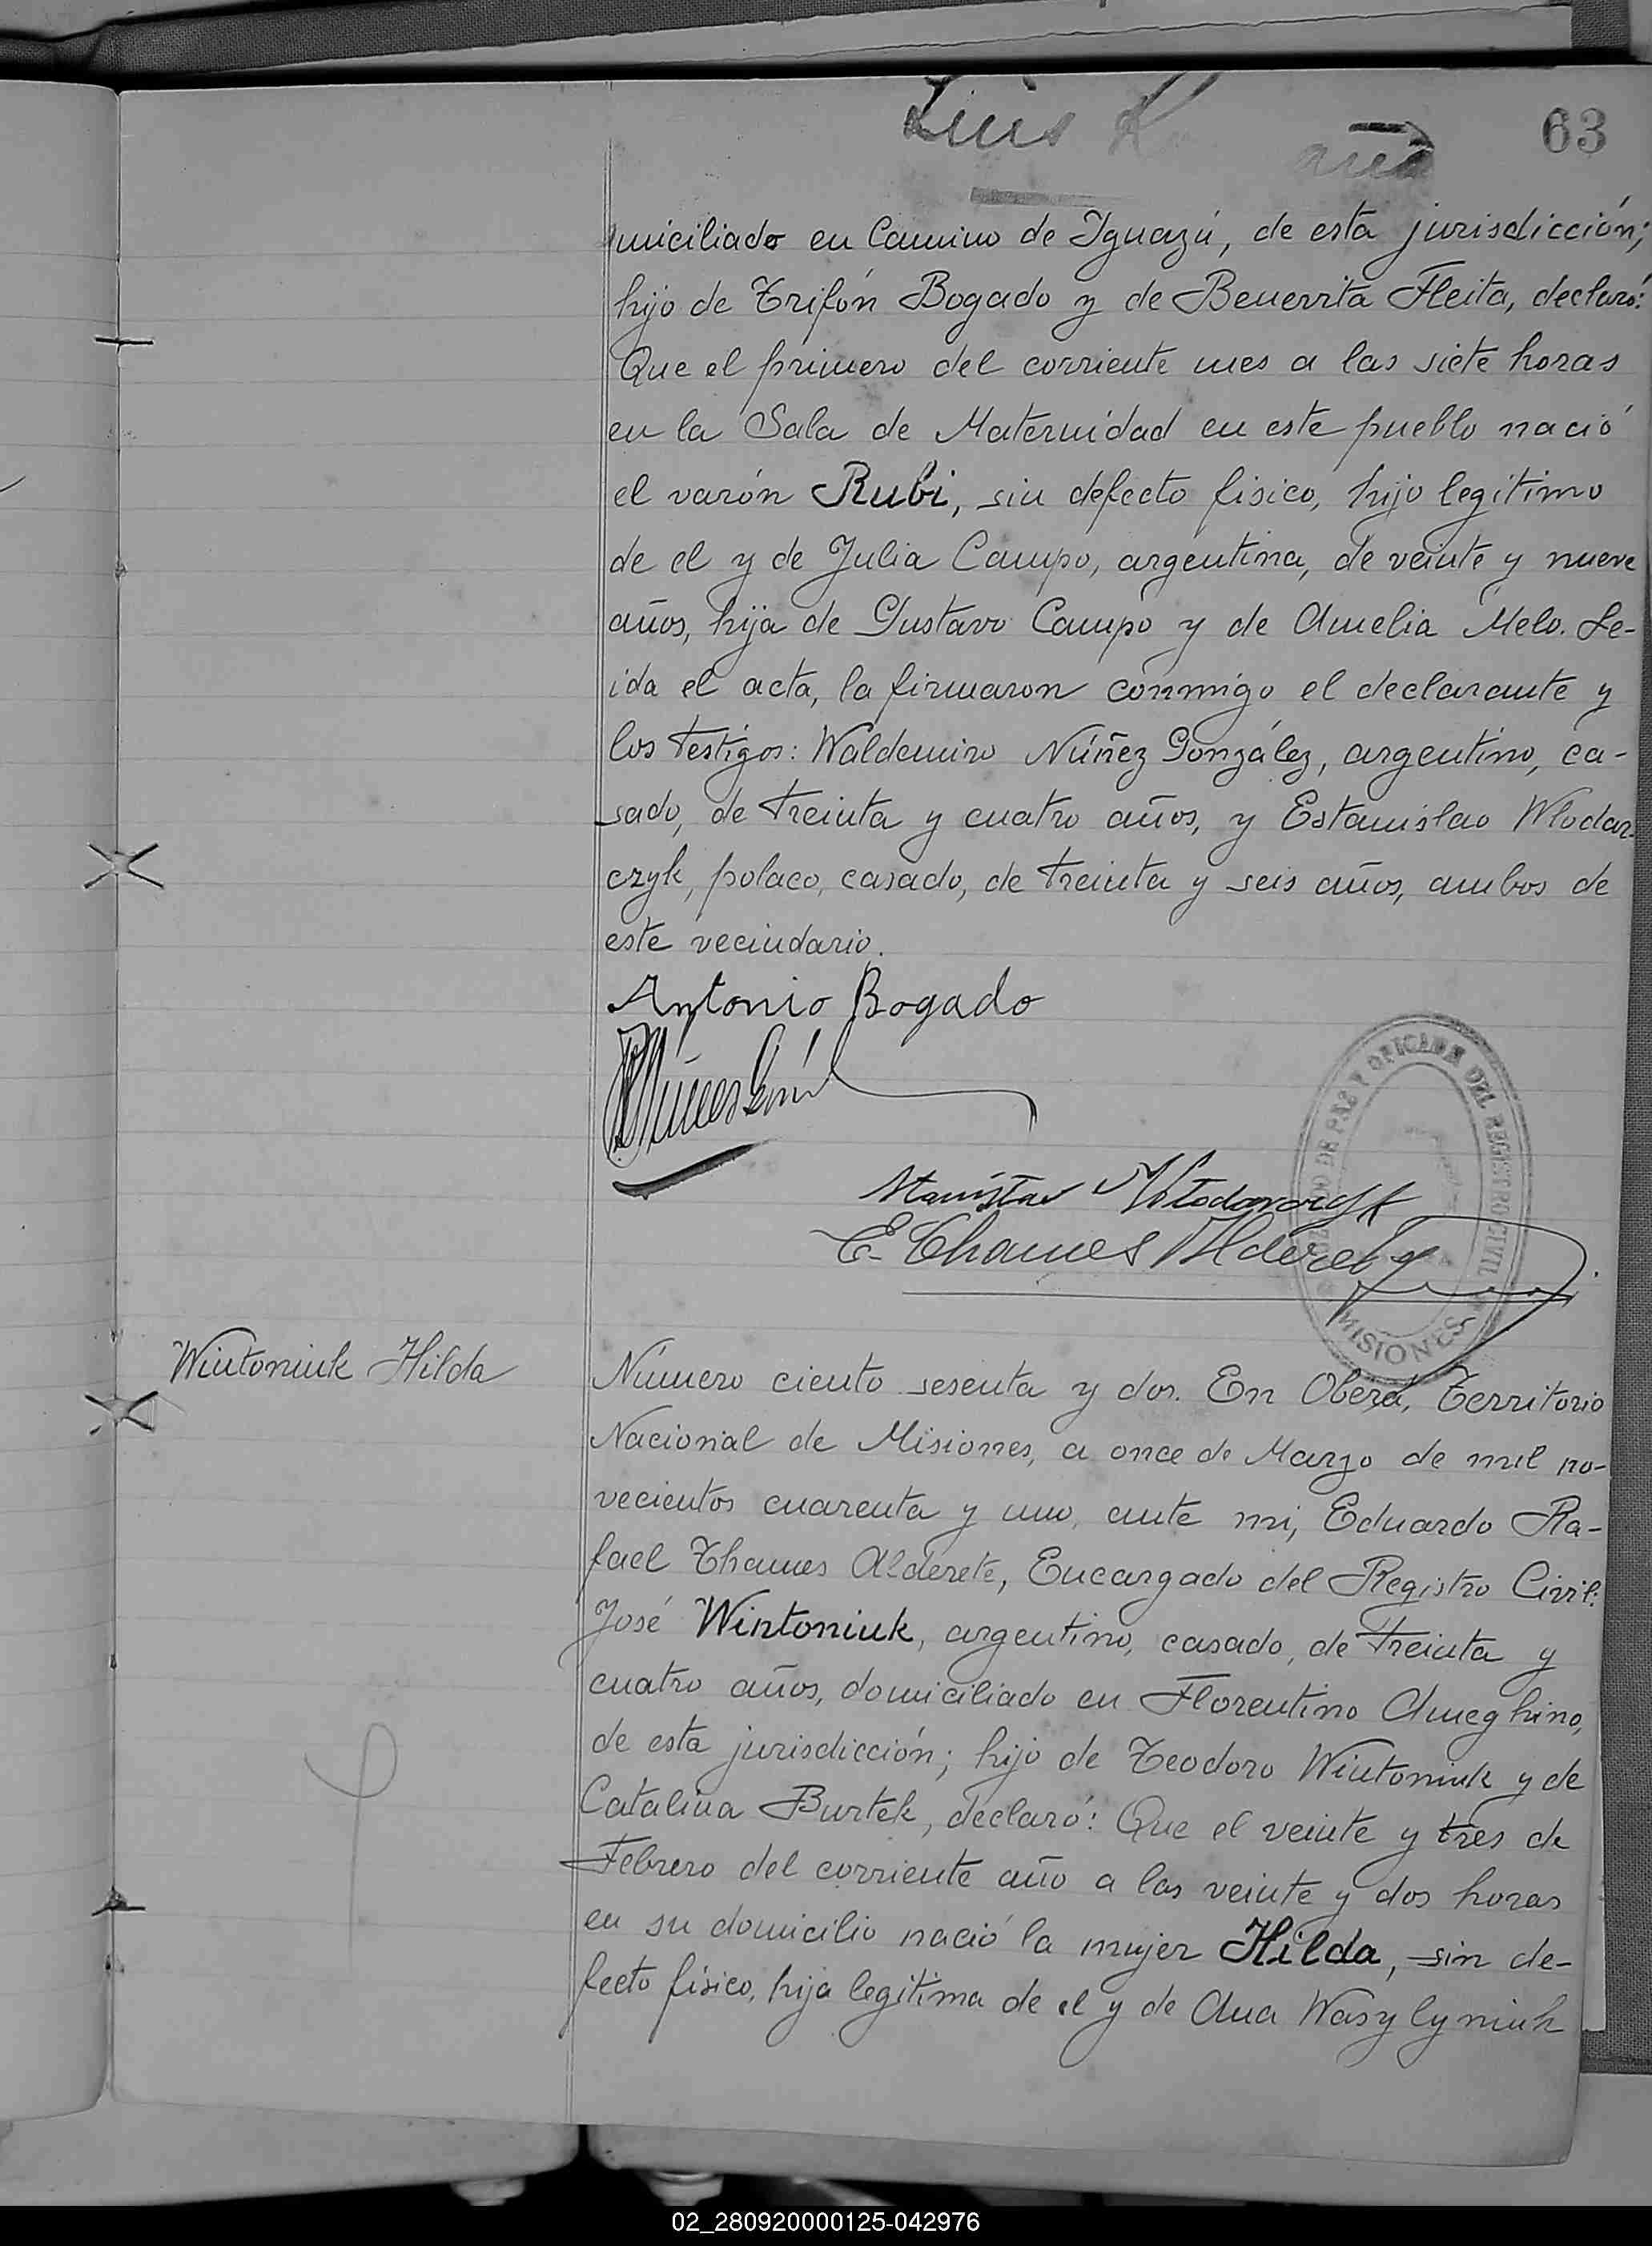 Luis
63
miciliado en Camino de Yguazú, de esta jurisdicción;
hijo de Trifón Bogado y de Benerrita Fleita, declaró:
Que el primero del corriente mes a las siete horas
en la Sala de Maternidad en este pueblo nació
el varón Rubi, sin defecto fisico, hijo legitimo
de el y de Julia Campo, argentina, de veinte y nueve
años, hija de Gustavo Campo y de Amelia Melo. Le-
ida el acta, la firmaron conmigo el declarante y
los testigos: Waldemiro Núñez González, argentino, ca-
sado, de treinta y cuatro años, y Estanislao Wlodar-
czyk, polaco, casado, de treinta y seis años, ambos de
este vecindario.
Antonio Bogado
Stanisław Włodarczyk
E. Thames Alderete
JUZGADO DE PAZ Y OFICINA DEL REGISTRO CIVIL
MISIONES
Wintoniuk Hilda
Número ciento sesenta y dos. En Oberá, Territorio
Nacional de Misiones, a once de Marzo de mil no-
vecientos cuarenta y uno, ante mi, Eduardo Ra-
fael Thames Alderete, Encargado del Registro Civil:
José Wintoniuk, argentino, casado, de treinta y
cuatro años, domiciliado en Florentino Ameghino,
de esta jurisdicción; hijo de Teodoro Wintoniuk y de
Catalina Burtek, declaró: Que el veinte y tres de
Febrero del corriente año a las veinte y dos horas
en su domicilio nació la mujer Hilda, sin de-
fecto físico, hija legitima de el y de Ana Wasylyniuk
02_280920000125-042976